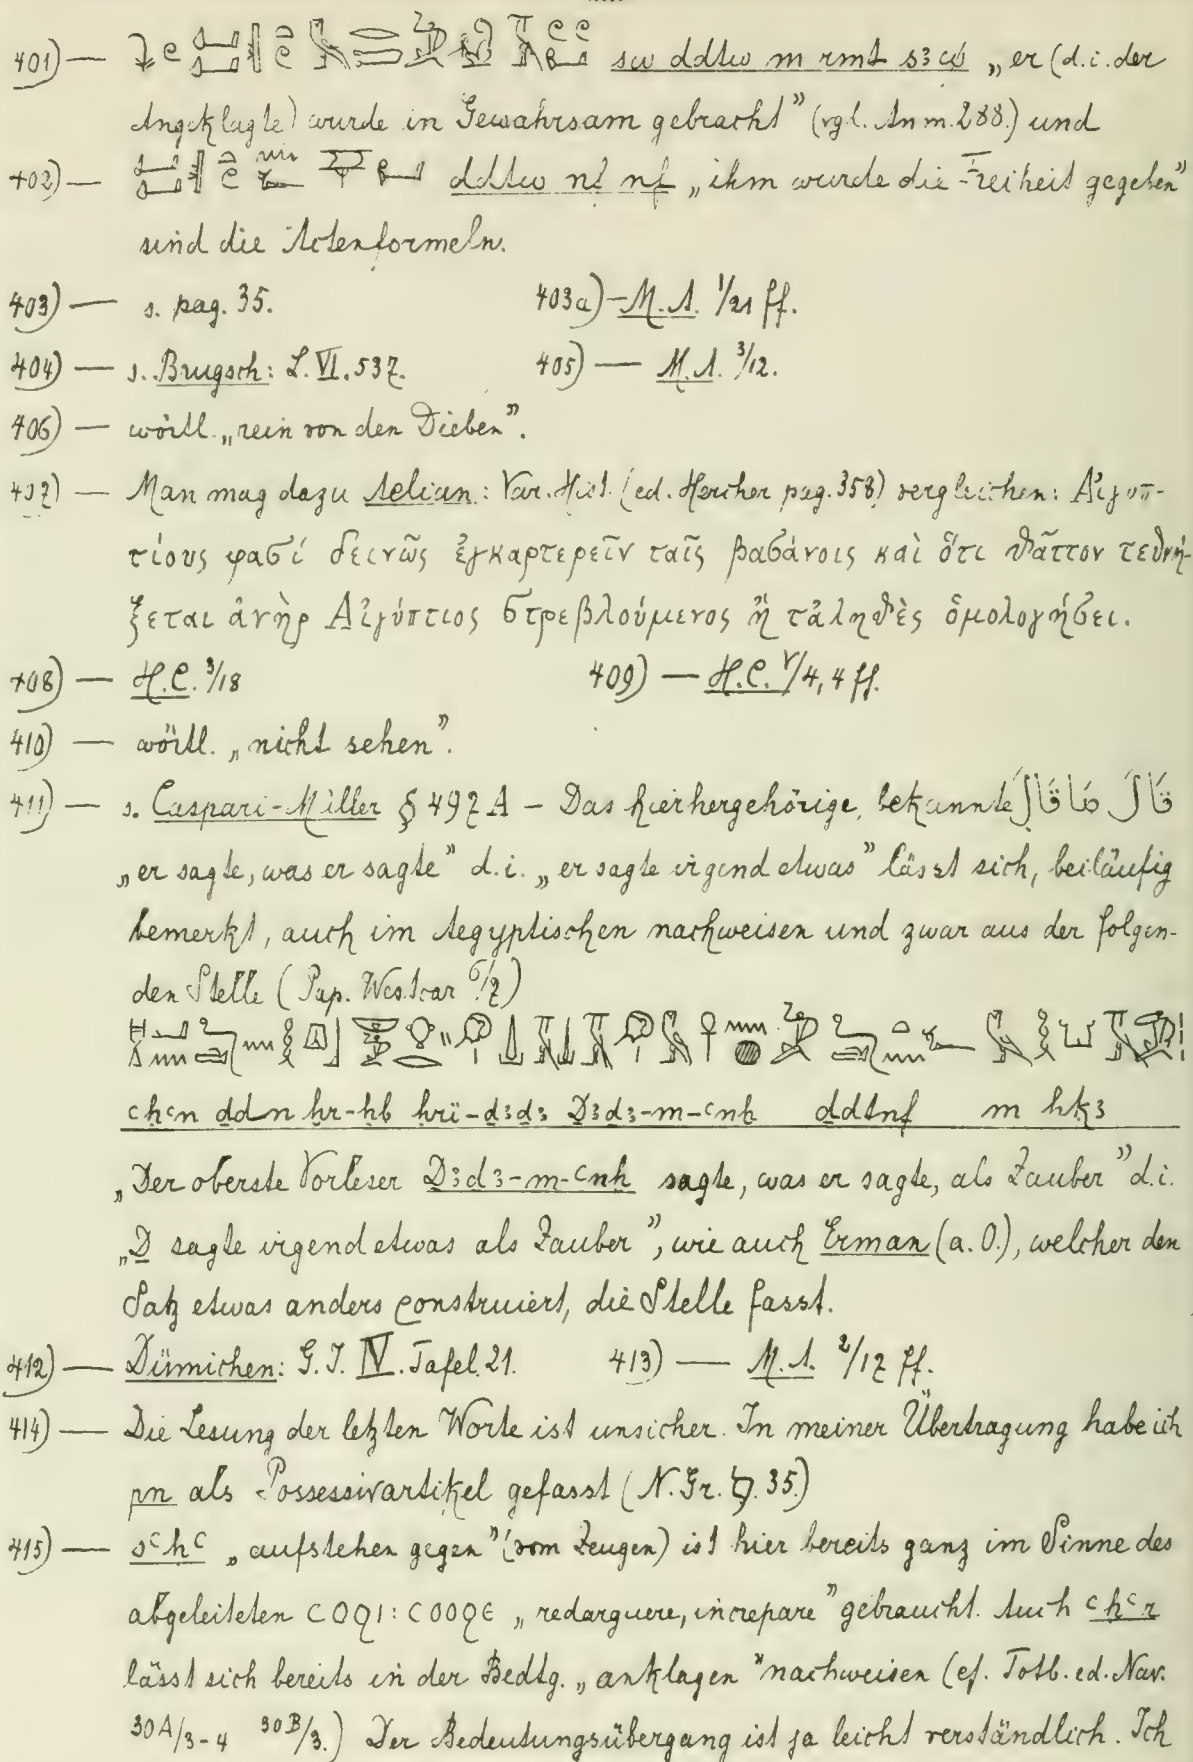 401) — sw ddtw m rmt s3w „er (d.i. der
Angeklagte) wurde in Gewahrsam gebracht” (vgl. Anm. 288.) und
402) — ddtw nf „ihm wurde die Freiheit gegeben”
sind die Actenformeln.
403) — s. pag. 35. 403a) — M.A. 1/21 ff.
404) — s. Brugsch: L. VI. 537. 405) — M.A. 3/12.
406) — wörtl. „rein von den Dieben”.
407) — Man mag dazu Aelian: Var. Hist. (ed. Hercher pag. 358) vergleichen: Αἰγυπ-
τίους φασί δεινῶς ἐγκαρτερεῖν ταῖς βασάνοις καὶ ὅτι θᾶττον τεθνή-
ξεται ἀνὴρ Αἰγύπτιος στρεβλούμενος ἢ τἀληθὲς ὁμολογήσει.
408) — H.C. 3/18 409) — H.C. V/4, 4 ff.
410) — wörtl. „nicht sehen”.
411) — s. Caspari-Müller § 497 A – Das hierhergehörige, bekannte قَالَ مَا قَالَ
„er sagte, was er sagte” d.i. „er sagte irgend etwas” lässt sich, beiläufig
bemerkt, auch im Aegyptischen nachweisen und zwar aus der folgen-
den Stelle (Pap. Westcar 6/7)
chcn ddn hr-hb hrï-d3d3 D3d3-m-cnh ddtnf m hk3
„Der oberste Vorleser D3d3-m-cnh sagte, was er sagte, als Zauber” d.i.
„D sagte irgend etwas als Zauber”, wie auch Erman (a. O.), welcher den
Satz etwas anders construiert, die Stelle fasst.
412) — Dümichen: G.I. IV. Tafel. 21. 413) — M.A. 2/17 ff.
414) — Die Lesung der letzten Worte ist unsicher. In meiner Übertragung habe ich
pn als Possessivartikel gefasst (N. Gr. § 35.)
415) — schc „aufstehen gegen” (vom Zeugen) ist hier bereits ganz im Sinne des
abgeleiteten ⲥⲟϩⲓ: ⲥⲟⲟϩⲉ „redarguere, increpare” gebraucht. Auch chc r
lässt sich bereits in der Bedtg. „anklagen” nachweisen (cf. Totb. ed. Nav.
30A/3-4 30B/3.) Der Bedeutungsübergang ist ja leicht verständlich. Ich